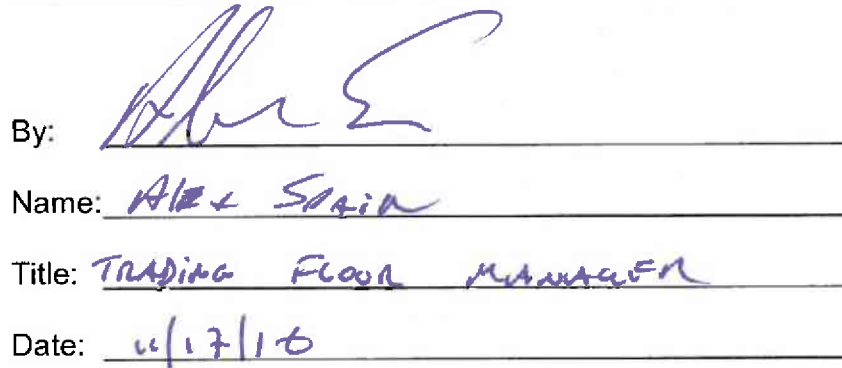 By:
Name: Alex Spain
Title: TRADING FLOOR MANAGER
Date: 11/17/16